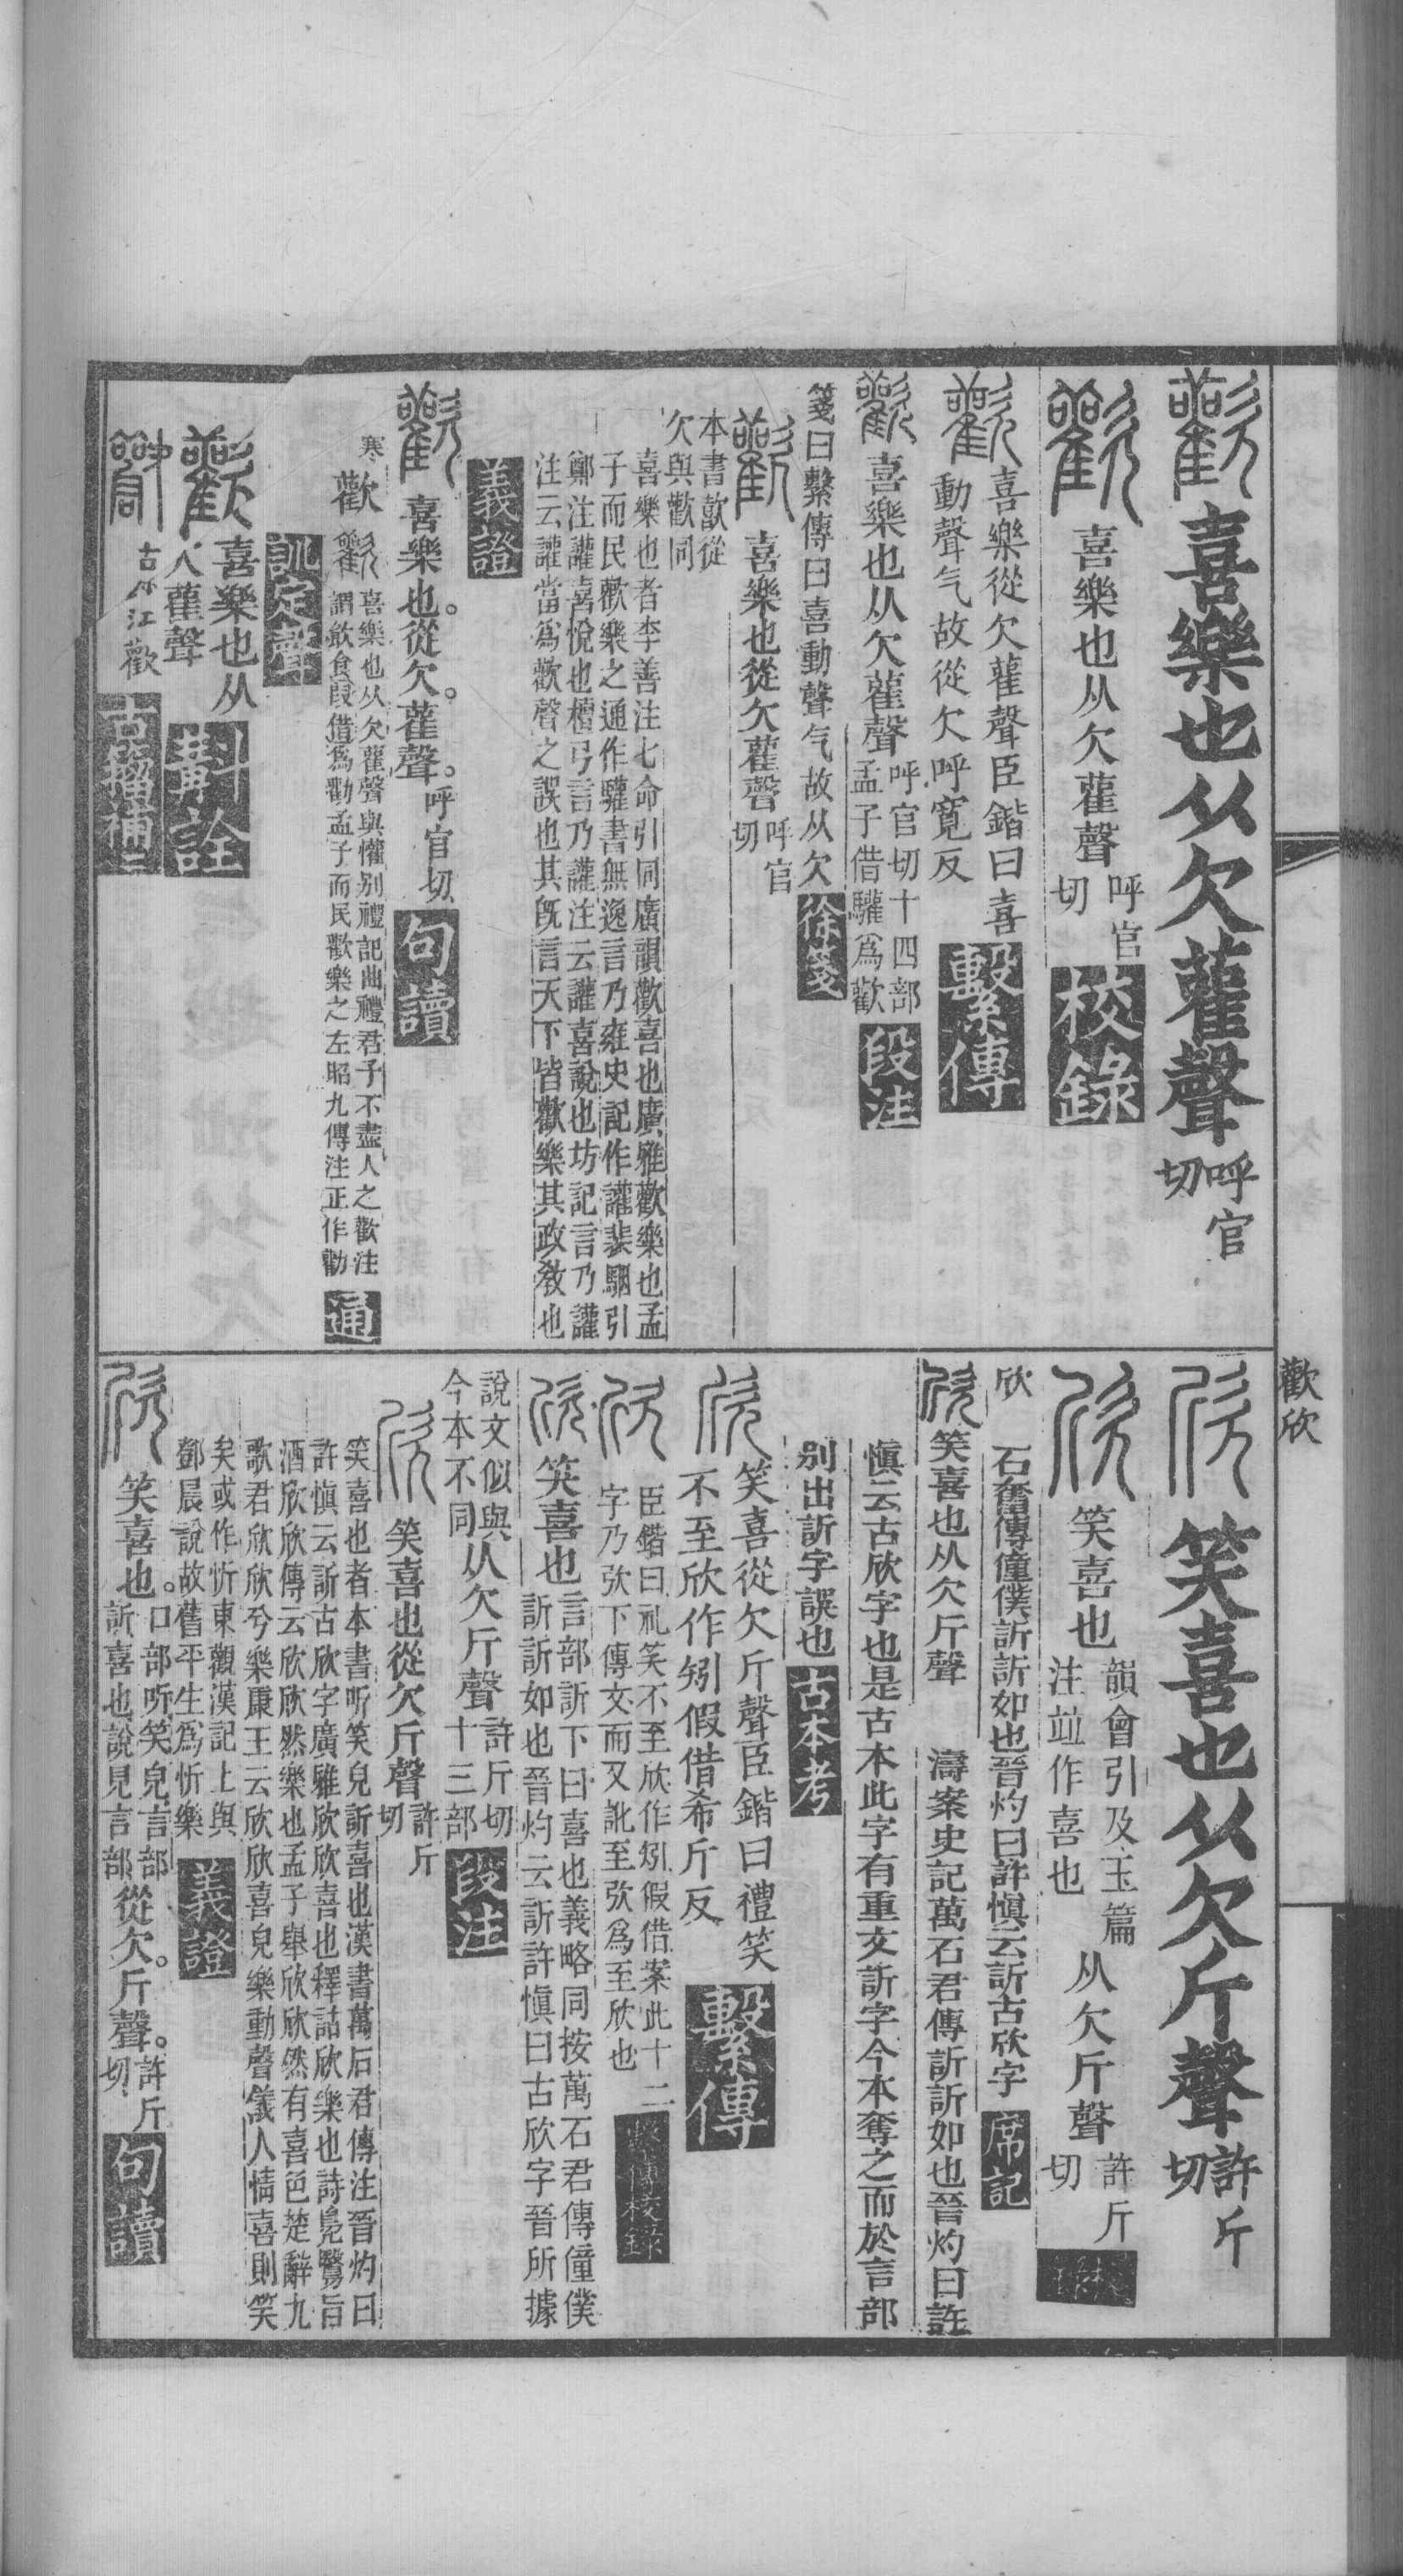 歡欣
歡 喜樂也从欠雚聲呼官切
歡 喜樂也从欠雚聲呼官切 校錄
歡 喜樂從欠雚聲臣鍇曰喜
動聲气故從欠呼寬反 繫傳
歡 喜樂也从欠雚聲呼官切十四部孟子借驩爲歡 段注
箋曰繫傳曰喜動聲气故从欠 徐箋
歡 喜樂也從欠雚聲呼官切
本書歖從
欠與歡同
喜樂也者李善注七命引同廣韻歡喜也廣雅歡樂也孟
子而民歡樂之通作驩書無逸言乃雍史記作讙裴駰引
鄭注讙喜悅也檀弓言乃讙注云讙喜說也坊記言乃讙
注云讙當爲歡聲之誤也其旣言天下皆歡樂其政敎也
義證
歡 喜樂也。從欠。雚聲。呼官切 句讀
寒
歡 歡 喜樂也从欠雚聲與懽別禮記曲禮君子不盡人之歡注
謂飮食叚借爲勸孟子而民歡樂之左昭九傳注正作勸 通
訓定聲
歡 喜樂也从
人雚聲 斠詮
古
江歡 古籀補
欣 笑喜也从欠斤聲許斤切
欣 笑喜也韻會引及玉篇注竝作喜也从欠斤聲許斤切 校錄
欣 石奮傳僮僕訢訢如也晉灼曰許愼云訢古欣字 席記
欣 笑喜也从欠斤聲 濤案史記萬石君傳訢訢如也晉灼曰許
愼云古欣字也是古本此字有重文訢字今本奪之而於言部
別出訢字誤也 古本考
欣 笑喜從欠斤聲臣鍇曰禮笑
不至欣作矧假借希斤反 繫傳
欣 臣鍇曰礼笑不至欣作矧假借案此十二
字乃弞下傳文而又訛至弞爲至欣也 繫傳校錄
欣 笑喜也言部訢下曰喜也義略同按萬石君傳僮僕
訢訢如也晉灼云訢許愼曰古欣字晉所據
說文似與
今本不同从欠斤聲許斤切十三部 段注
欣 笑喜也從欠斤聲許斤切
笑喜也者本書听笑皃訢喜也漢書萬石君傳注晉灼曰
許愼云訢古欣字廣雅欣欣喜也釋詁欣樂也詩鳧鷖旨
酒欣欣傳云欣欣然樂也孟子舉欣欣然有喜色楚辭九
歌君欣欣兮樂康王云欣欣喜皃樂動聲儀人情喜則笑
矣或作忻東觀漢記上與
鄧晨說故舊平生爲忻樂 義證
欣 笑喜也。口部听笑皃言部訢喜也說見言部從欠。斤聲。許斤切 句讀